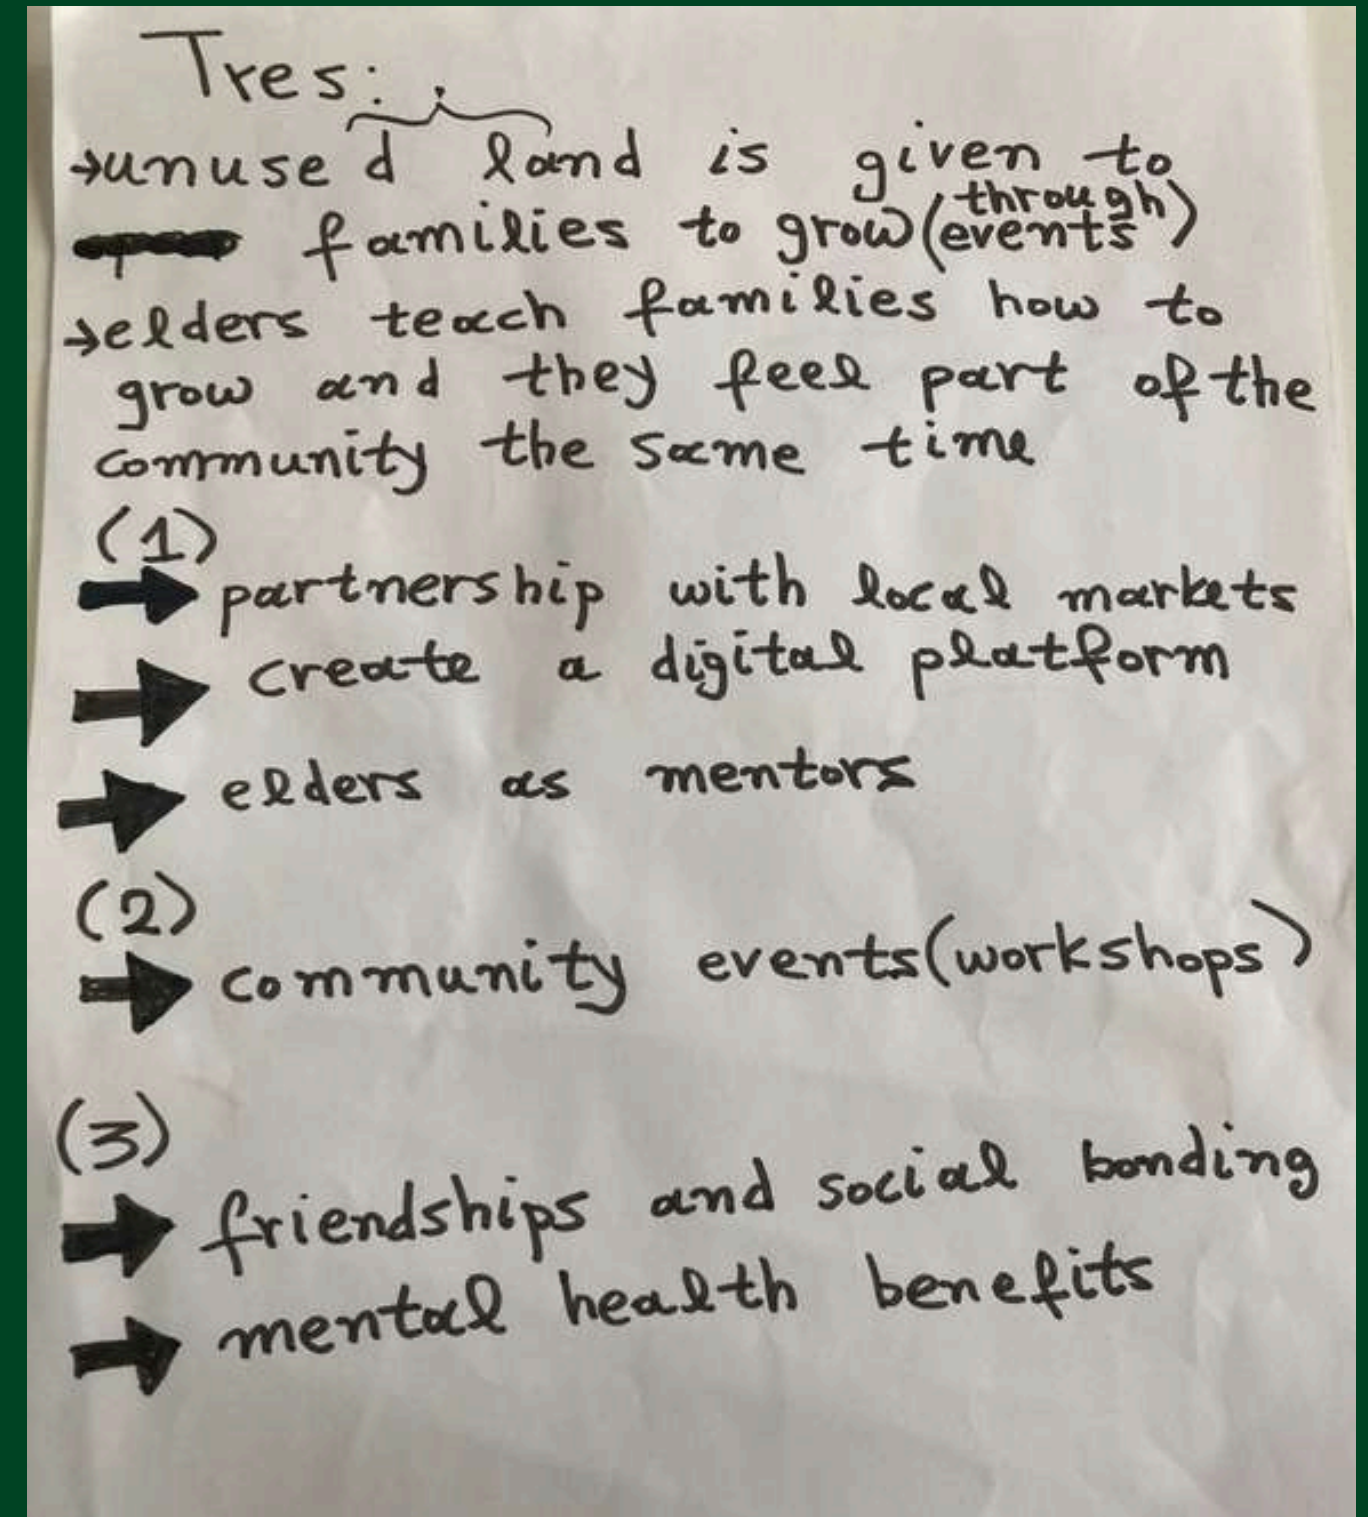 Tres:
→unused land is given to
families to grow (through
events)
→elders teach families how to
grow and they feel part of the
community the same time
(1)
➡ partnership with local markets
➡ create a digital platform
➡ elders as mentors
(2)
➡ community events (workshops)
(3)
➡ friendships and social bonding
➡ mental health benefits